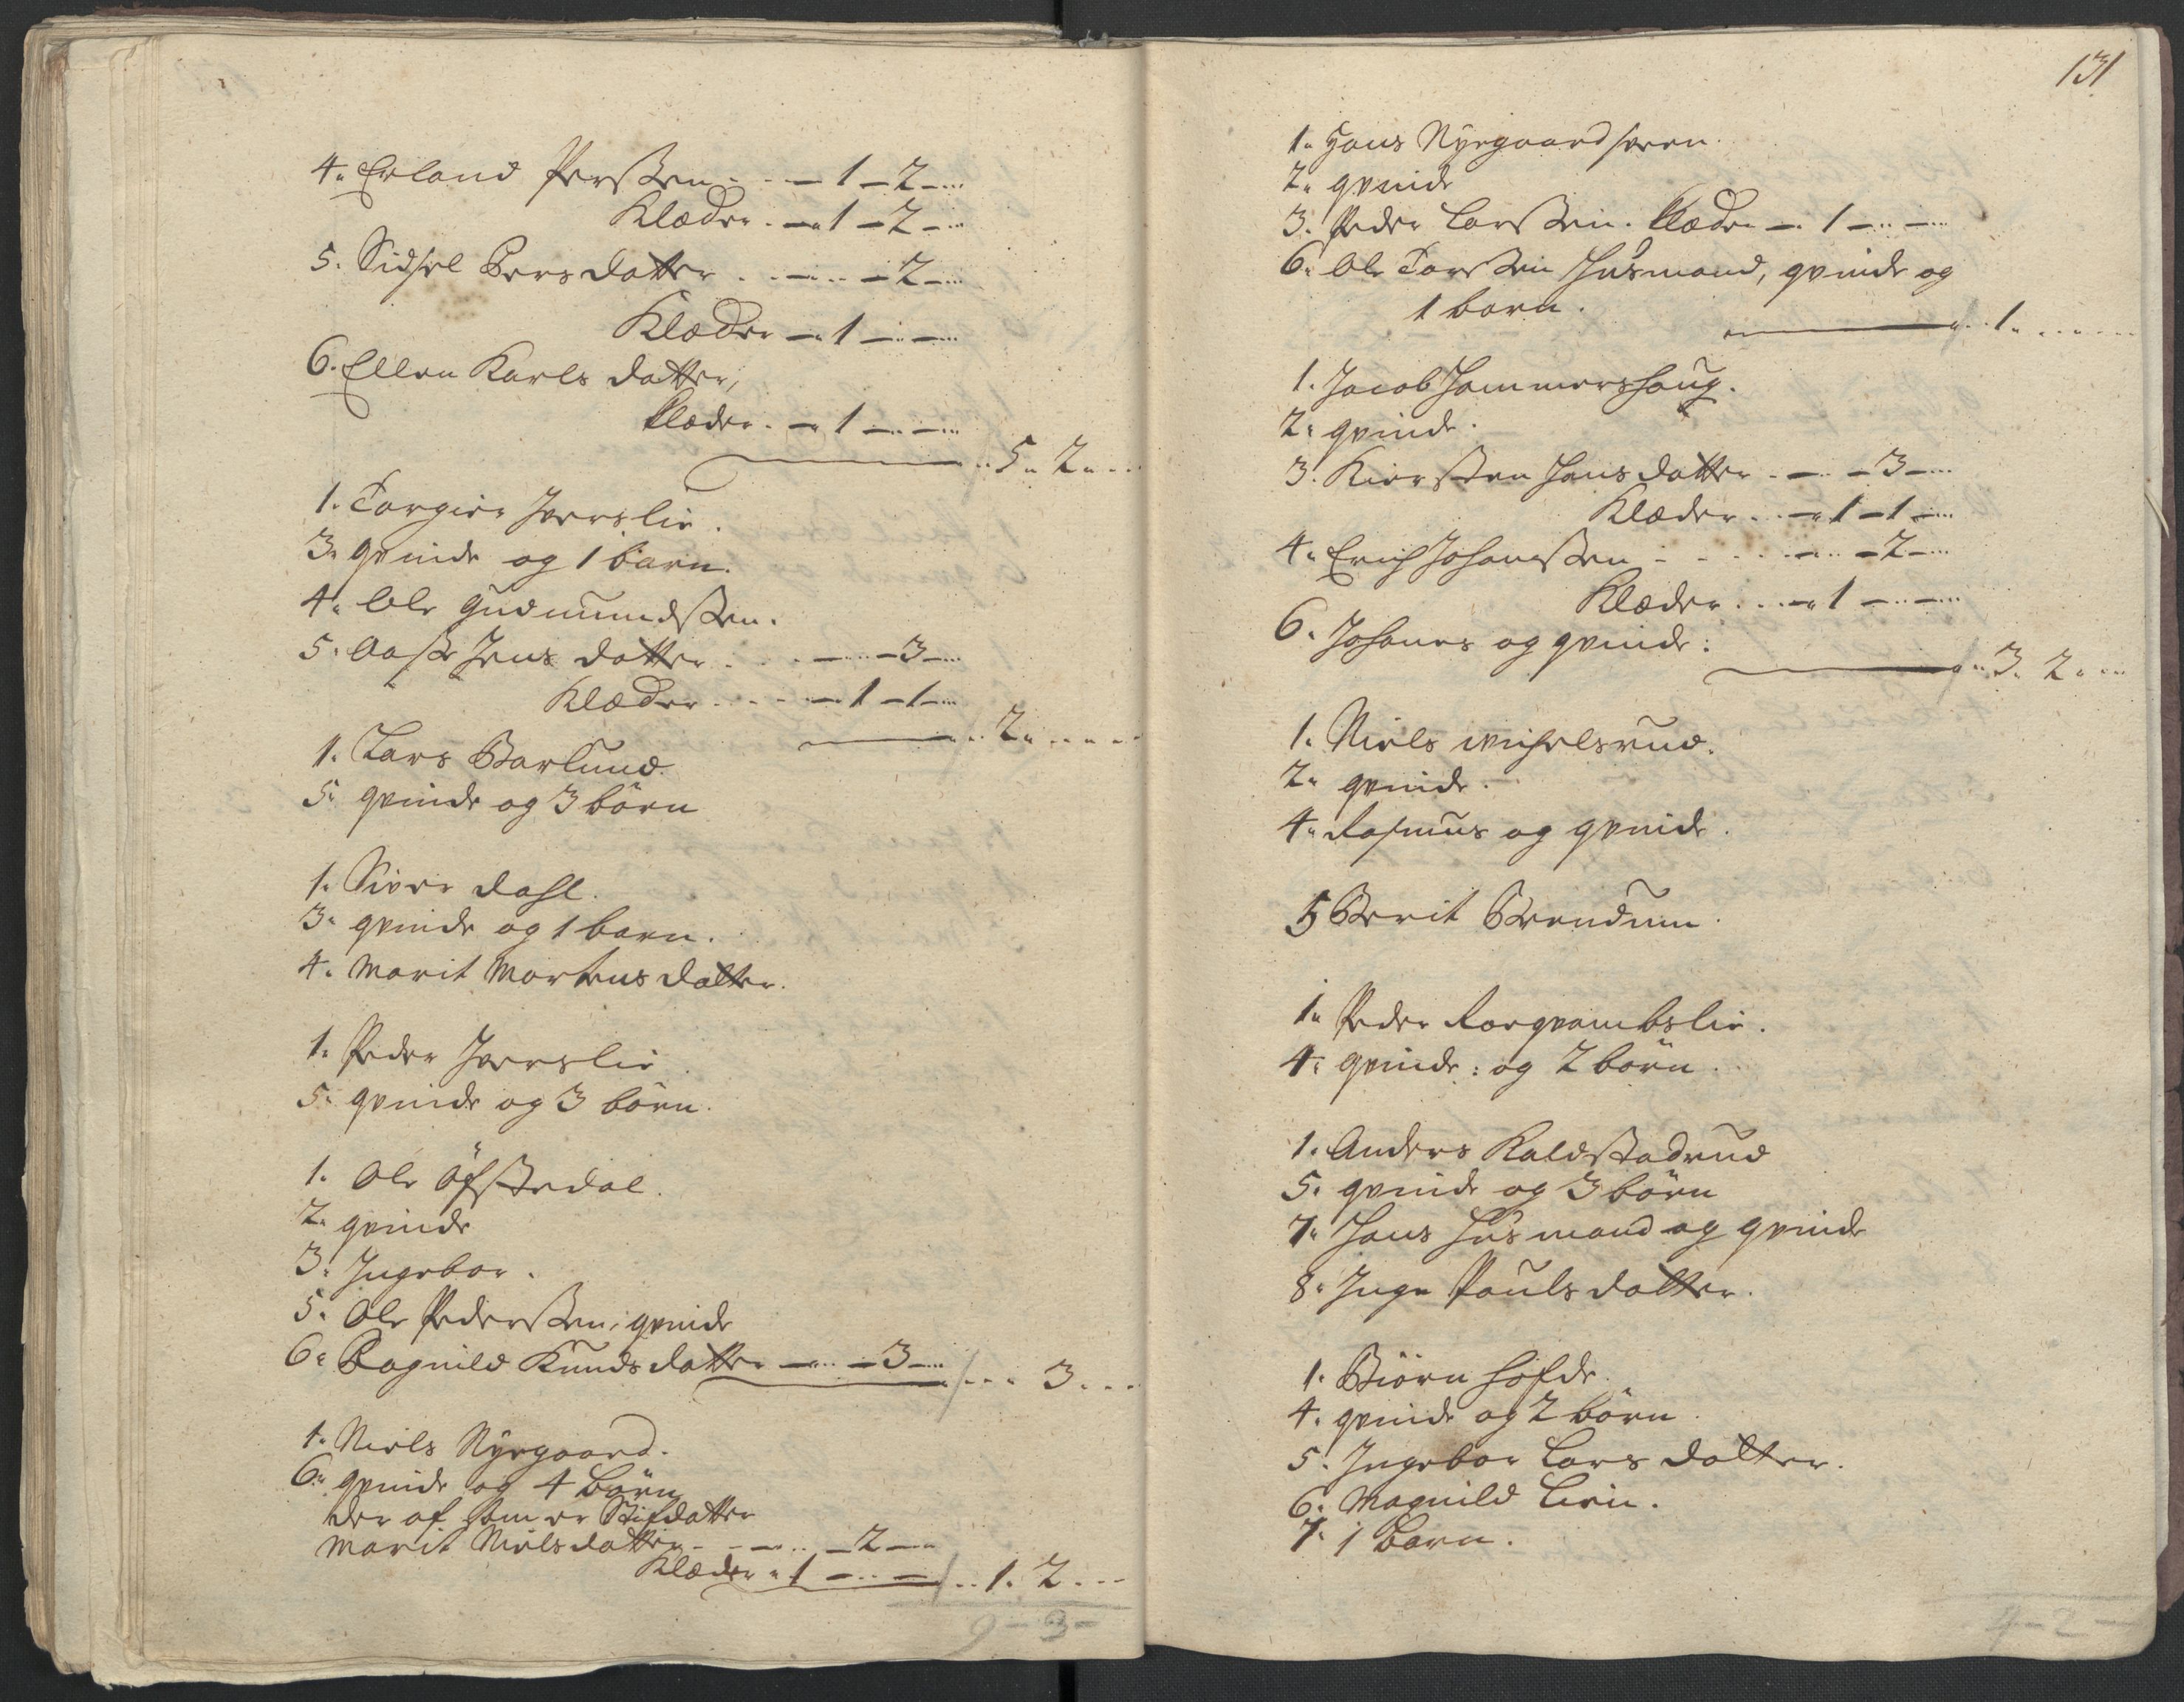 4. Erland Persten - - - 1 - 2 - ...
Klæder. - 1 - 2 - ...
5. Sidsel Pers datter . . - .. - 2 - ...
Klæder - 1 - .. - ...
6. Ellen Karls datter,
Klæder. - 1 - .. - ...
.. 5. 2. ...
1. Torgier Iverslie.
3. qvinde og 1 barn.
4. Ole Gudmundsten.
5. Aase Jens datter . . - .. - 3 - ...
Klæder . . . - 1 - 1 - ...
.. 2. ...
1. Lars Barlund.
5. qvinde og 3 börn
1. Siver Dahl.
3. qvinde og 1 barn.
4. Marit Mortens datter.
1. Peder Iverslie.
5. qvinde og 3 börn.
1. Ole Öfstedal.
2. qvinde
3. Ingebor.
5. Ole Pedersten, qvinde
6. Ragnild Knuds datter - .. - 3 - ...
. . . 3. . .
1. Niels Nyegaard.
6. qvinde og 4 Börn
der af som er Stifdatter
Marit Niels datter - - - .. - 2 - ...
Klæder . 1 - .. - .. 1. 2. ...
9 - 3 -
131
1. Hans Nyegaardsveen.
2. qvinde
3. Peder Larsten. Klæder - . 1 - .. - ...
6. Ole Torsten Husmand, qvinde og
1 barn.
. . 1. . . .
1. Jacob Hammershaug.
2. qvinde.
3. Kiersten Hans datter . - .. - 3 - ...
Klæder . . - 1 - 1 - ...
4. Erich Johansten - - - - .. - 2 - ...
Klæder . . . - 1 - .. - ...
6. Johanes og qvinde:
.. 3. 2. ...
1. Niels
2. qvinde.
4. Rasmus og qvinde.
5 Berit Brendum.
1. Peder Korqvambslie.
4. qvinde: og 2 börn.
1. Anders Kaldstadrud
5. qvinde og 3 börn
7. Hans Husmand og qvinde
8. Inge Pouls datter.
1. Biörn Hofde.
4. qvinde og 2 börn.
5. Ingebor Lars datter.
6. Magnild Lien.
7. 1 Barn.
4 - 2 -